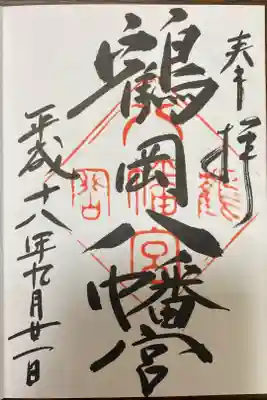 奉拝
鶴岡八幡宮
平成十八年九月廿一日